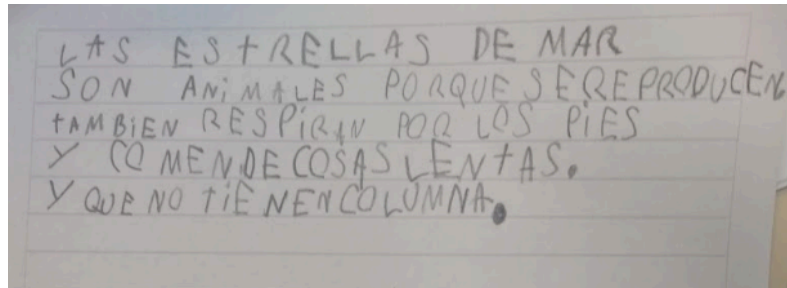 LAS ESTRELLAS DE MAR
SON ANiMALES PORQUE SEREPRODUCEN
tAMBiEN RESPiRAN POR LOS PiES
Y COMENDE COSAS LENtAS.
Y QUE NO tiENENCOLUMNA.